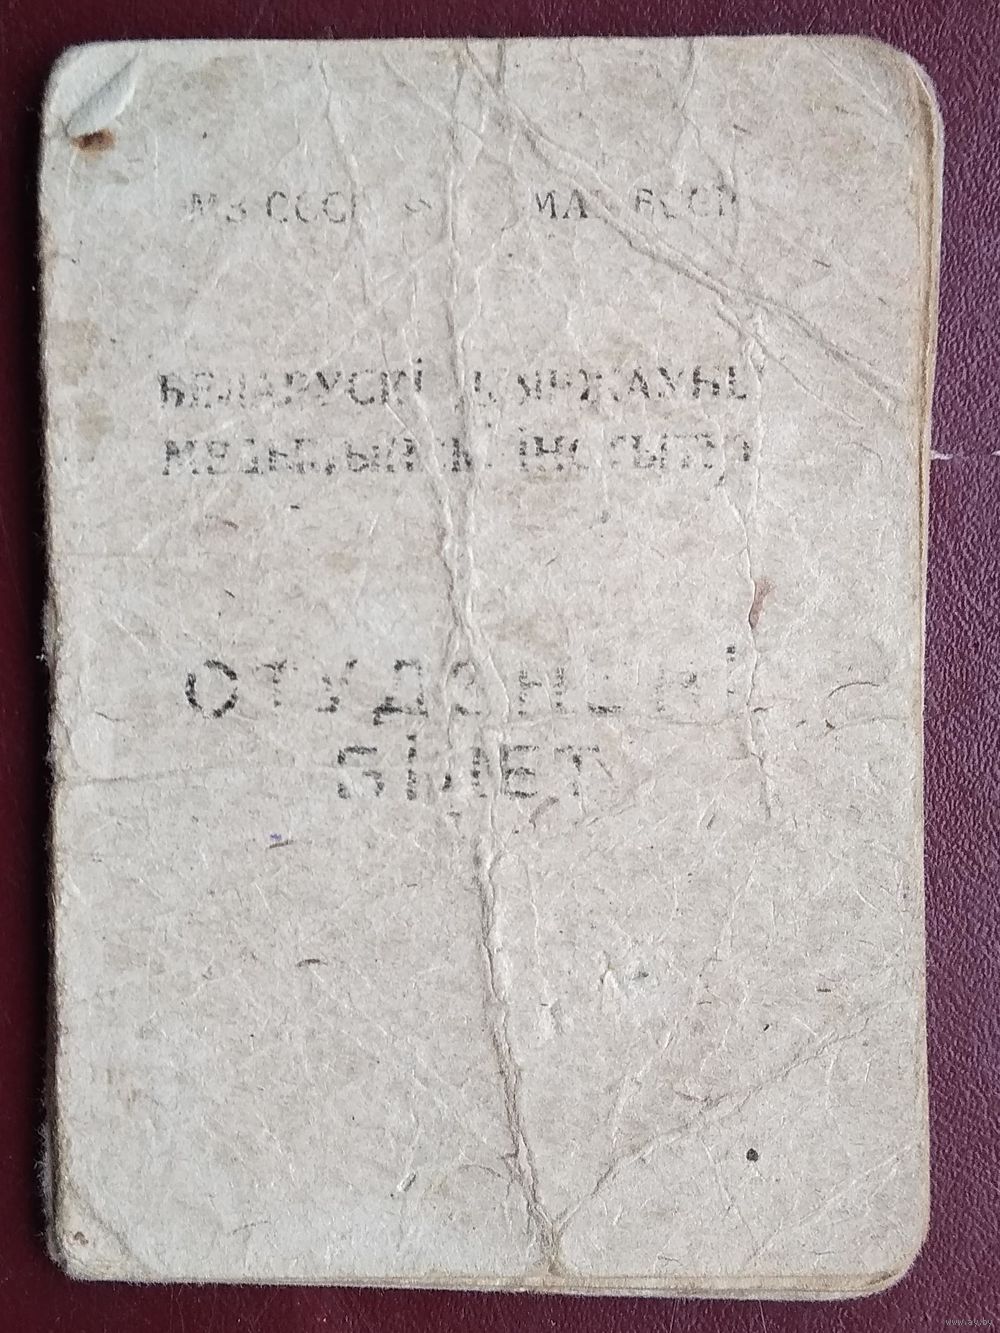 МЗ СССР БССР
БЕЛАРУСКІ ДЗЯРЖАУНЫ
МЕДЫЦЫНСКІ ІНСТЫТУТ
СТУДЭНЦКІ
БІЛЕТ
www.ay.by